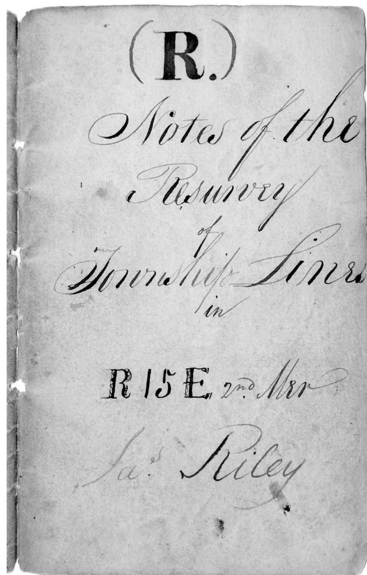 (R.)
Notes of the
Resurvey
of
Township Lines
in
R 15 E. 2nd Mer
Jas. Riley